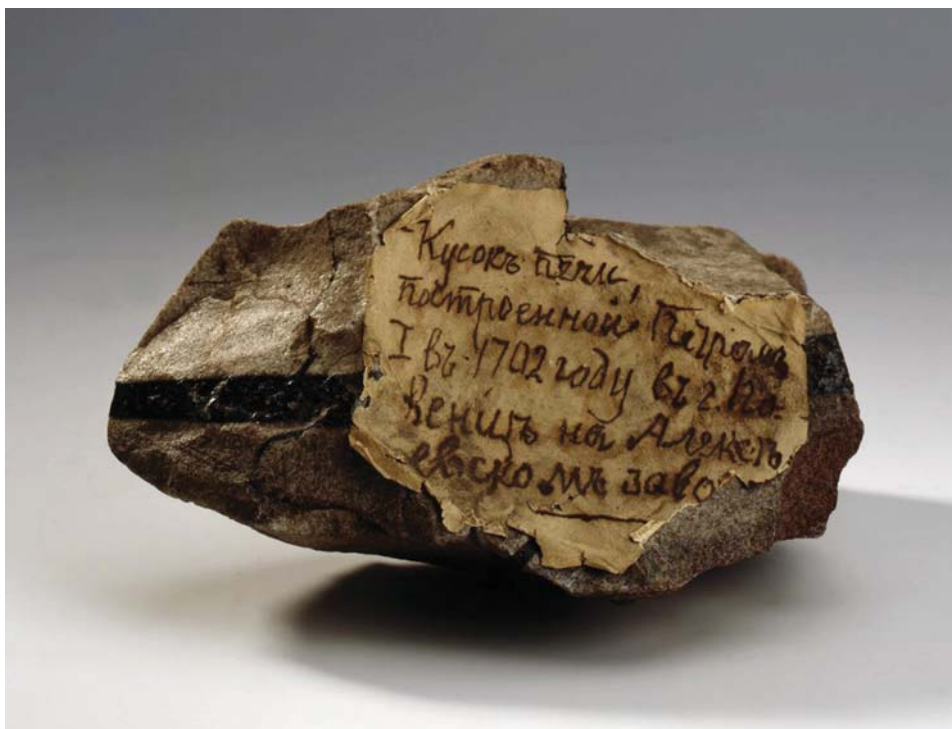 Кусокъ печи,
построенной Петромъ
I въ 1702 году въ г. По-
венцѣ на Алексѣ-
евскомъ заво